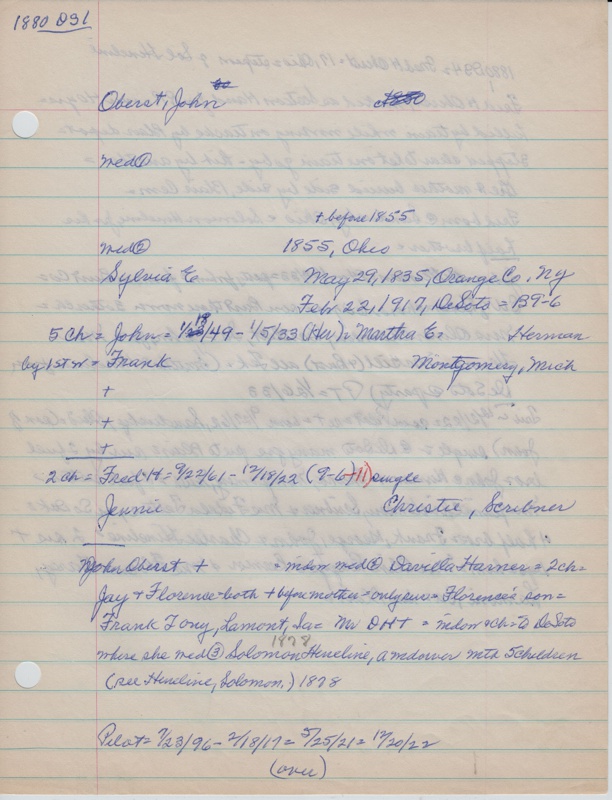 1880 DS1
Oberst, John
med ①
+ before 1855
med ② 1855, Ohio
Sylvia E May 29, 1835, Orange Co. Ny
Feb 22, 1917, DeSoto = B9-6
5 ch = John = /49 - 1/5/33 (Her) = Martha E = Herman
by 1st w = Frank Montgomery, Mich
+
+
+
2 ch = Fred H = 9/22/61 - 12/18/22 (9-6 +11) single
Jennie Christie, Scribner
John Oberst + = med ② Davilla Harner = 2 ch =
Jay + Florence - both + before mother = only = Florence's son =
Frank Tony, Lamont, Ia = Mr DH+ = & Ch = to DeSoto
1878
where she med ③ Solomon Heneline, a widower with 5 children
(see Heneline, Solomon.) 1878
Pilot = 7/23/96 - 2/18/17 = 5/25/21 = 12/20/22
(over)